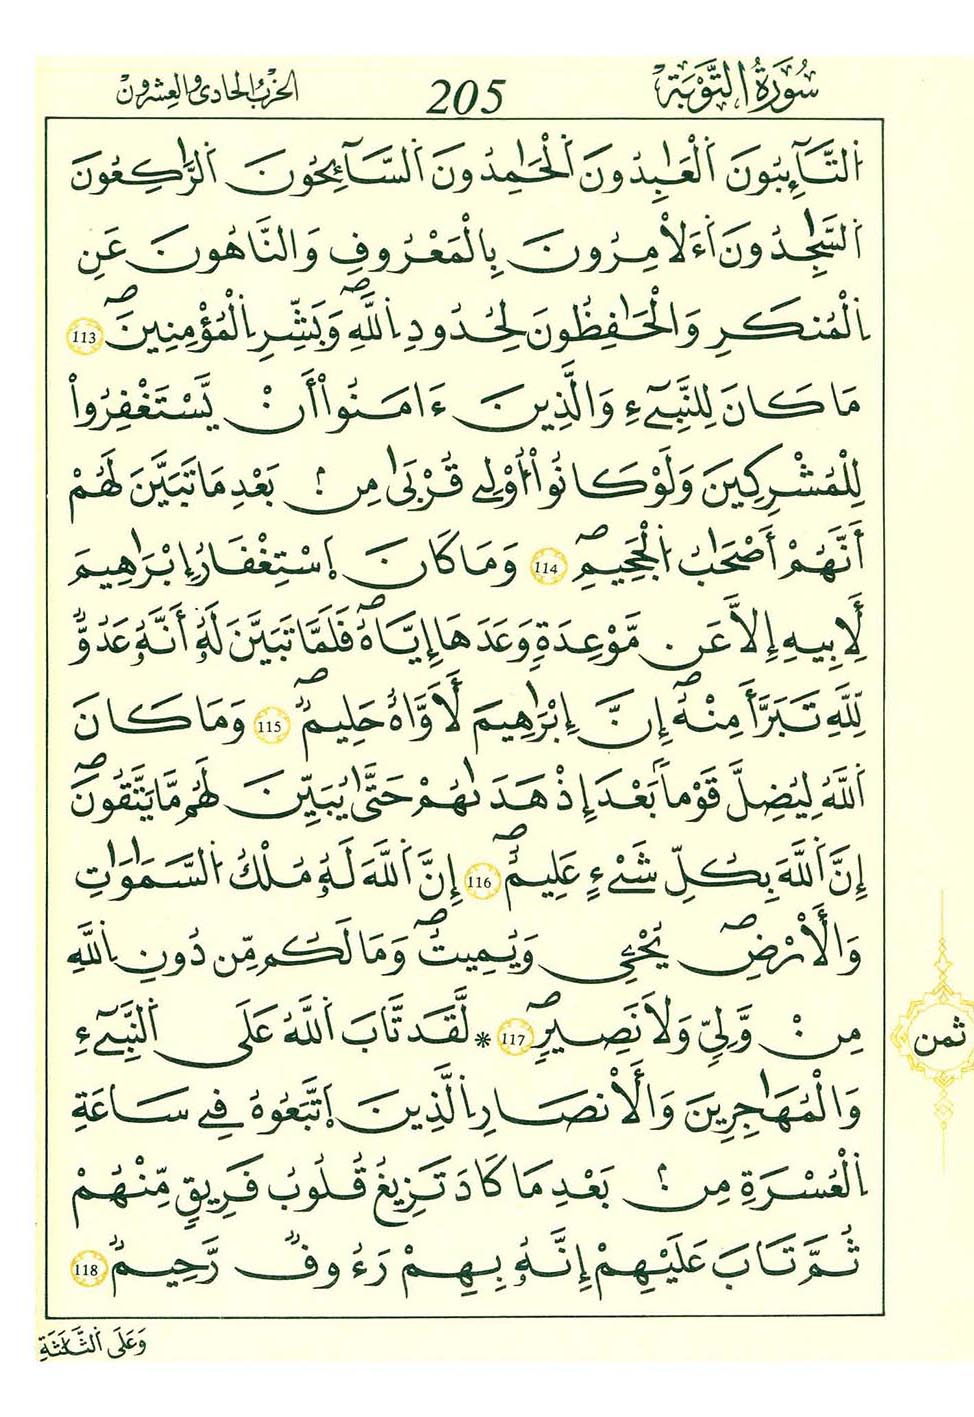 سُورَةُ التَّوْبَةِ
205
الحزب الحادي والعشرون
اَلتَّـٰٓئِبُونَ اَلْعَٰبِدُونَ اَلْحَٰمِدُونَ اَلسَّـٰٓئِحُونَ اَلرَّٰكِعُونَ
اَلسَّٰجِدُونَ اَءَلَامِرُونَ بِالْمَعْرُوفِ وَالنَّاهُونَ عَنِ
اِلْمُنكَرِ وَالْحَٰفِظُونَ لِحُدُودِ اِللَّهِۖ وَبَشِّرِ اِلْمُؤْمِنِينَۖ 113
مَا كَانَ لِلنَّبِيٓءِ وَالَّذِينَ ءَامَنُوٓاْ أَنْ يَّسْتَغْفِرُواْ
لِلْمُشْرِكِينَ وَلَوْ كَانُوٓاْ أُوْلِے قُرْبَىٰ مِنۢ بَعْدِ مَا تَبَيَّنَ لَهُمْ
أَنَّهُمْ أَصْحَٰبُ اُلْجَحِيمِۖ 114 وَمَا كَانَ اَ۪سْتِغْفَارُ إِبْرَٰهِيمَ
لِأَبِيهِ إِلَّا عَن مَّوْعِدَةٖ وَعَدَهَا إِيَّاهُۖ فَلَمَّا تَبَيَّنَ لَهُۥ أَنَّهُۥ عَدُوّٞ
لِّلهِ تَبَرَّأَ مِنْهُۖ إِنَّ إِبْرَٰهِيمَ لَأَوَّٰهٌ حَلِيمٞۖ 115 وَمَا كَانَ
اَللَّهُ لِيُضِلَّ قَوْماَۢ بَعْدَ إِذْ هَدَىٰهُمْ حَتَّىٰ يُبَيِّنَ لَهُم مَّا يَتَّقُونَۖ
إِنَّ اَللَّهَ بِكُلِّ شَےْءٍ عَلِيمٌۖ 116 إِنَّ اَللَّهَ لَهُۥ مُلْكُ اُلسَّمَٰوَٰتِ
وَالْأَرْضِۖ يُحْيِۦ وَيُمِيتُۖ وَمَا لَكُم مِّن دُونِ اِللَّهِ
مِنْ وَّلِيّٖ وَلَا نَصِيرٖۖ 117 * لَّقَد تَّابَ اَللَّهُ عَلَى اَلنَّبِيٓءِ
ثمن
وَالْمُهَٰجِرِينَ وَالْأَنصَارِ اِلَّذِينَ اَ۪تَّبَعُوهُ فِے سَاعَةِ
اِلْعُسْرَةِ مِنۢ بَعْدِ مَا كَادَ تَزِيغُ قُلُوبُ فَرِيقٖ مِّنْهُمْ
ثُمَّ تَابَ عَلَيْهِمْ إِنَّهُۥ بِهِمْ رَءُوفٞ رَّحِيمٞ 118
وَعَلَى اَلثَّلَٰثَةِ